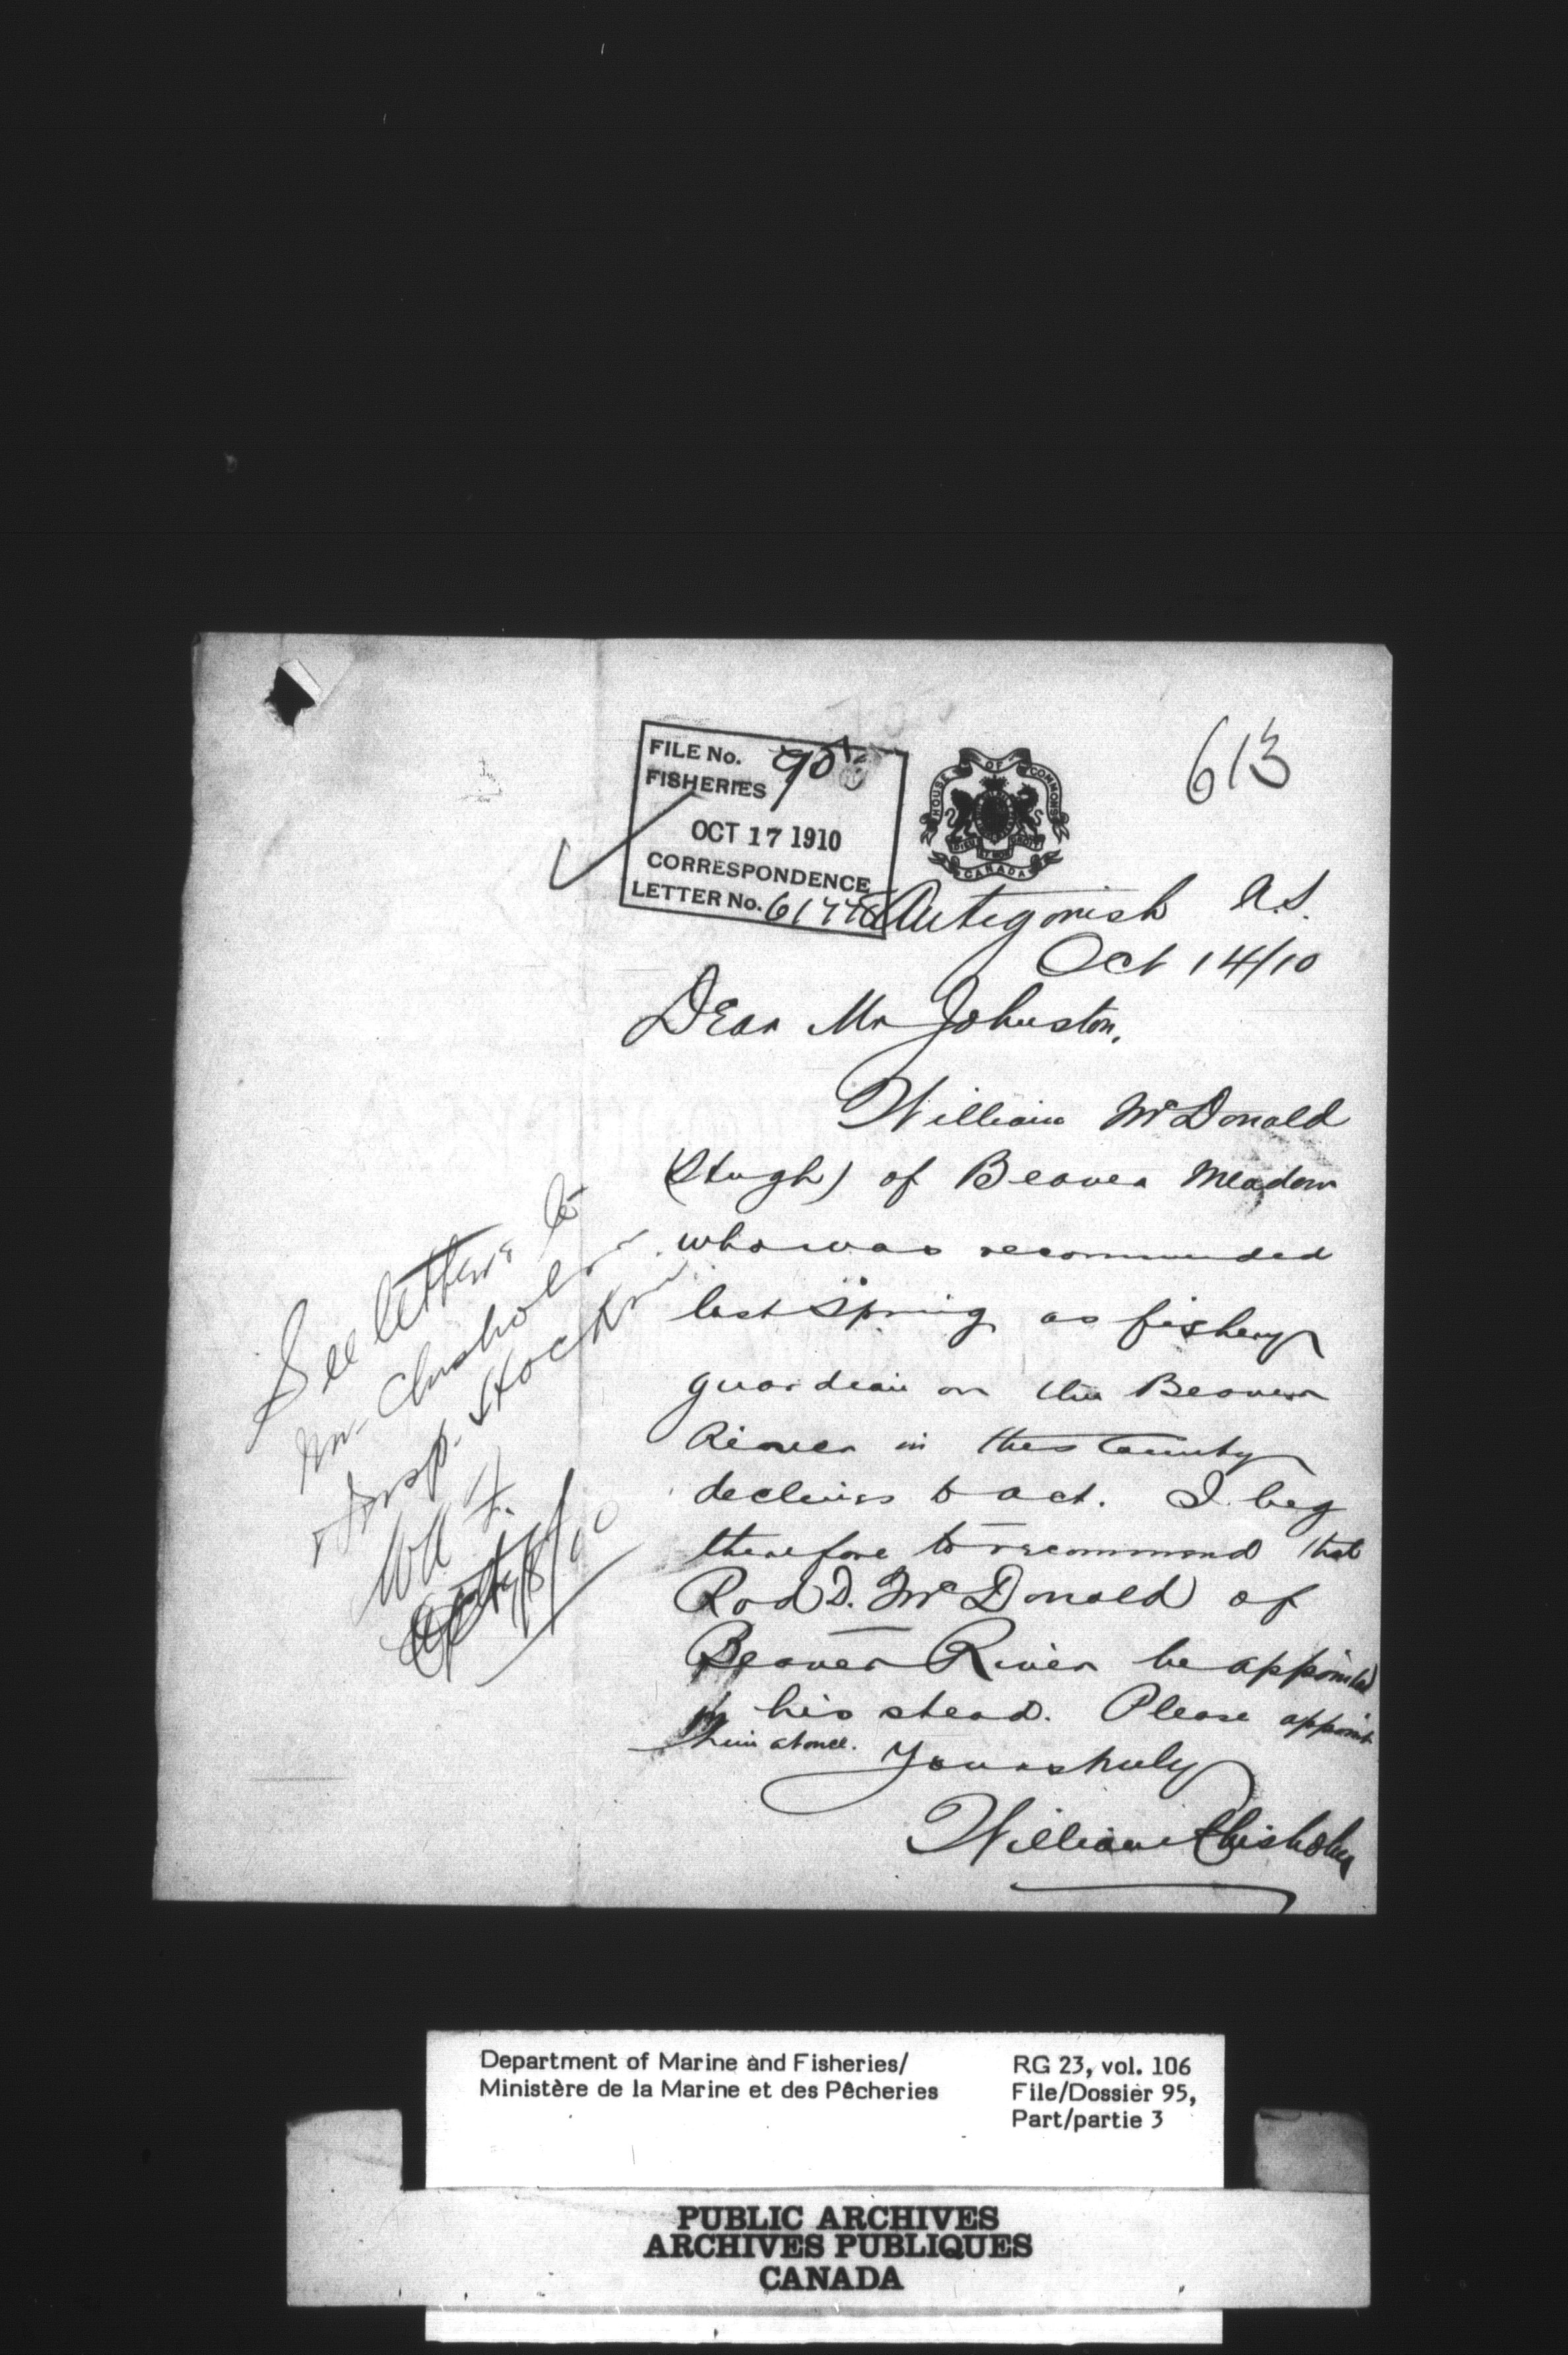 613
FILE No. 95
FISHERIES
OCT 17 1910
CORRESPONDENCE
LETTER No.
HOUSE OF COMMONS
CANADA
Antigonish N.S.
Oct 14/10
Dear Mr Johnston,
William McDonald
(Hugh) of Beaver Meadow
who was recommended
last Spring as fishery
guardian on the Beaver
River in this County
declines to act. I beg
therefore to recommend that
Rod D. McDonald of
Beaver River be appointed
in his stead. Please appoint
him at once.
Yours truly
William Chisholm
See letters to
Mr. Chisholm
+ Insp. Hockin
Department of Marine and Fisheries/
Ministère de la Marine et des Pêcheries
RG 23, vol. 106
File/Dossier 95,
Part/partie 3
PUBLIC ARCHIVES
ARCHIVES PUBLIQUES
CANADA